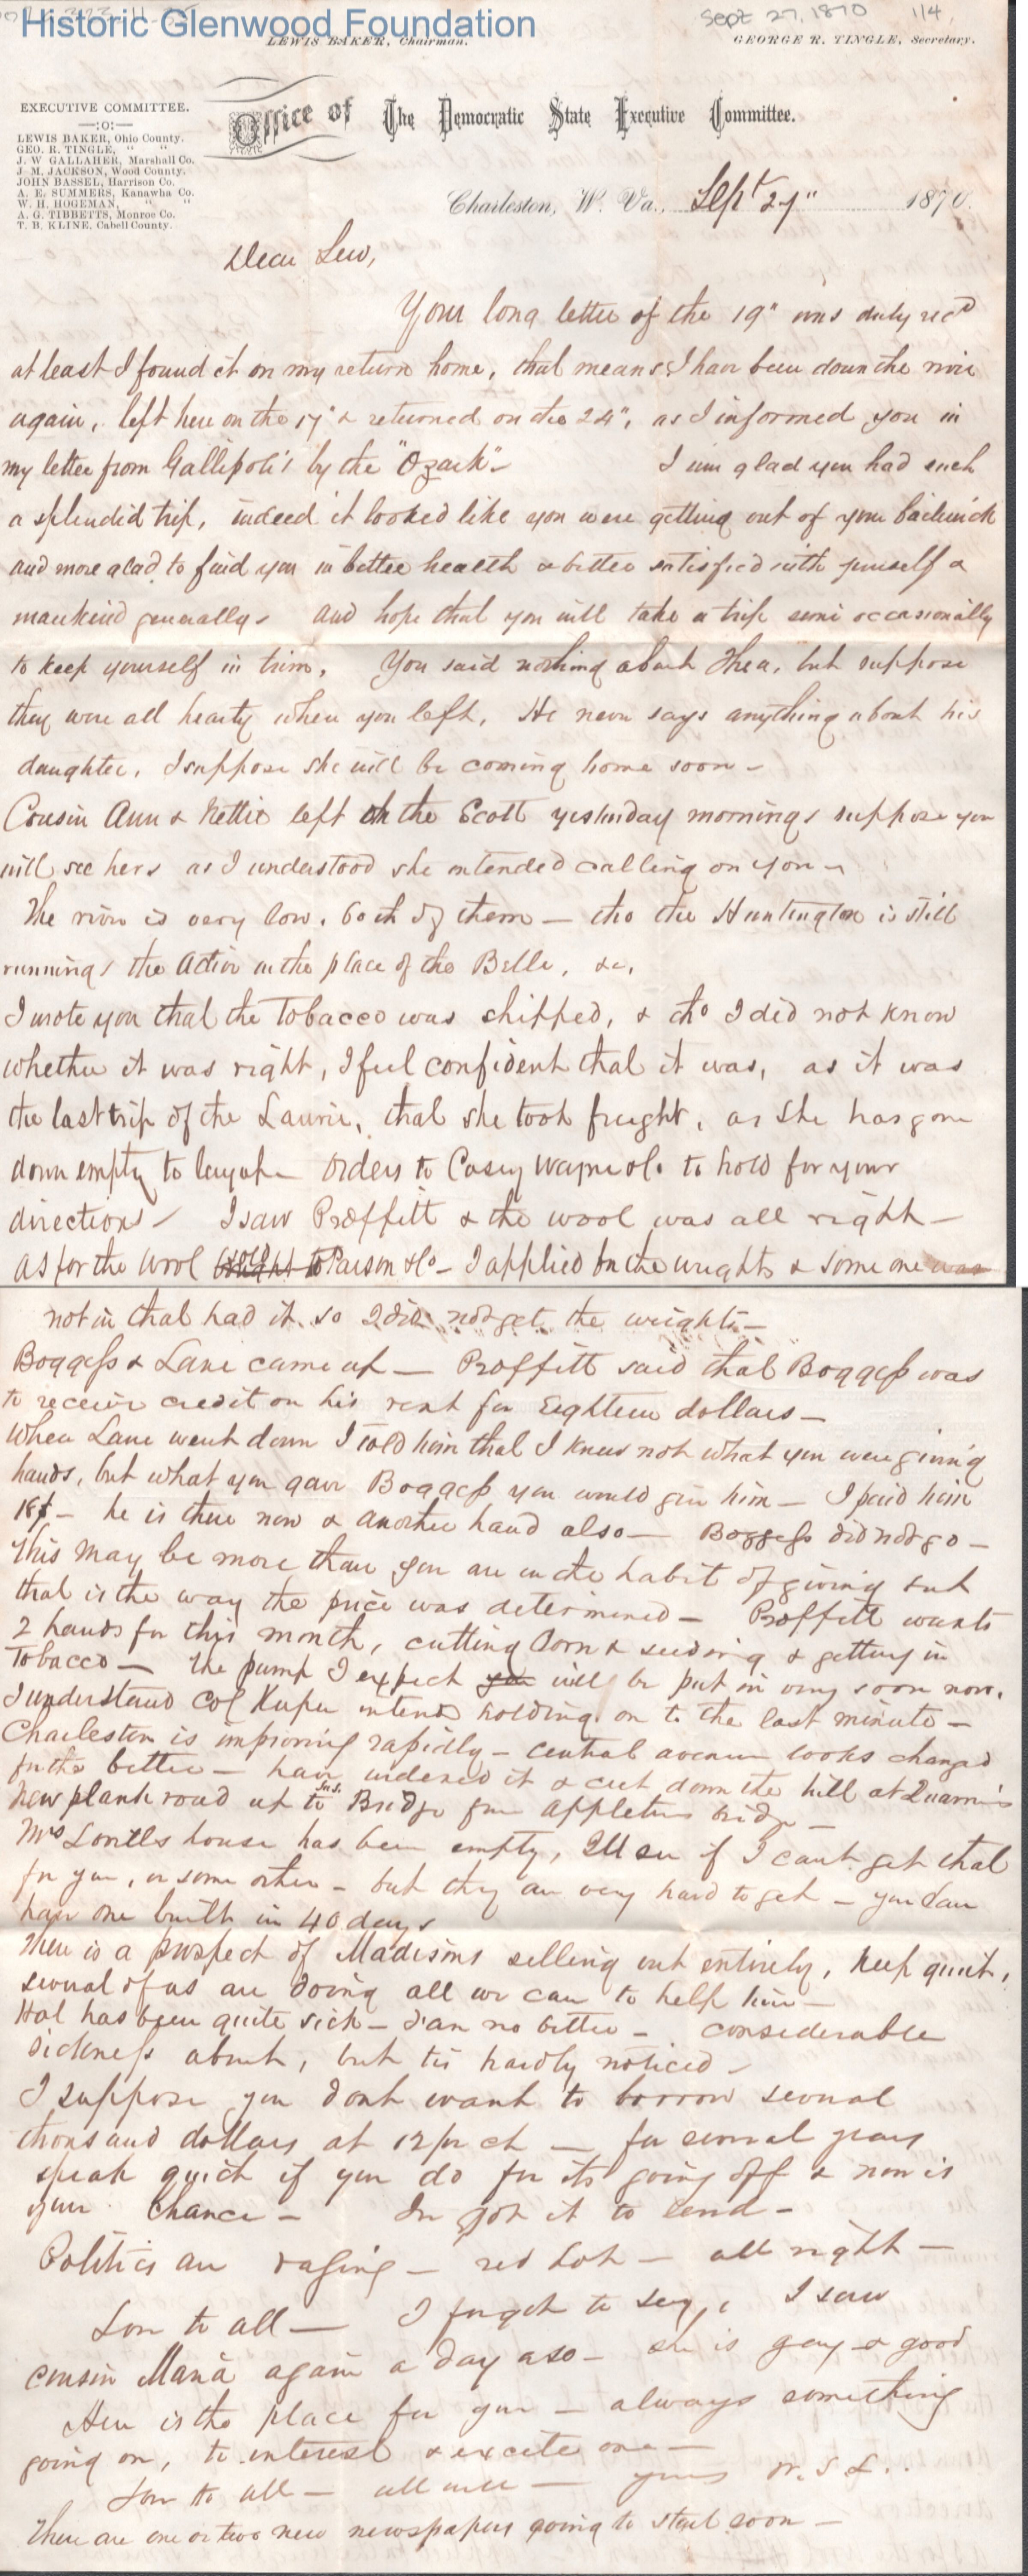 Historic Glenwood Foundation
Sept 27, 1870 1/4
LEWIS BAKER, Chairman.
GEORGE R. TINGLE, Secretary.
EXECUTIVE COMMITTEE.
—:o:—
LEWIS BAKER, Ohio County.
GEO. R. TINGLE, " "
J. W GALLAHER, Marshall Co.
J. M. JACKSON, Wood County.
JOHN BASSEL, Harrison Co.
A. E. SUMMERS, Kanawha Co.
W. H. HOGEMAN, " "
A. G. TIBBETTS, Monroe Co.
T. B. KLINE, Cabell County.
Office of The Democratic State Executive Committee.
Charleston, W. Va., Sept 27" 1870.
Dear Lew,
Your long letter of the 19" was duly recd
at least I found it on my return home, that means I have been down the river
again, left here on the 17" & returned on the 24", as I informed you in
my letter from Gallipolis by the "Ozark" - I am glad you had such
a splendid trip, indeed it looked like you were getting out of your bailiwick
and more glad to find you in better health & better satisfied with yourself &
mankind generally - and hope that you will take a trip semi occasionally
to keep yourself in trim. You said nothing about Thea, but suppose
they were all hearty when you left, He never says anything about his
daughter, I suppose she will be coming home soon -
Cousin Ann & Nettie left on the Scott yesterday morning, suppose you
will see her, as I understood she intended calling on you -
The river is very low, both of them - tho the Huntington is still
running, the Active in the place of the Belle, &c,
I wrote you that the Tobacco was shipped, & tho I did not know
whether it was right, I feel confident that it was, as it was
the last trip of the Laurie, that she took freight, as She has gone
down empty to layup - Orders to Casey Wayne & Co to hold for your
directions - I saw Proffitt & the wool was all right -
as for the wool sold to Parson & Co - I applied for the weights & some one was
not in that had it so I did not get the weights -
Boggess & Lane came up - Proffitt said that Boggess was
to receive credit on his rent for Eighteen dollars -
When Lane went down I told him that I knew not what you were giving
hands, but what you gave Boggess you would give him - I paid him
18$ - he is there now & another hand also - Boggess did not go -
This may be more than you are in the habit of giving but
that is the way the price was determined - Proffitt wants
2 hands for this month, cutting Corn & seeding & getting in
Tobacco - The pump I expect will be put in very soon now.
I understand Col Ruper intends holding on to the last minute -
Charleston is improving rapidly - central avenue looks changed
for the better - have widened it & cut down the hill at Quarrier's
New plank road up to Bridge from Appletons bridge -
Mrs Lovells house has been empty, Ill see if I cant get that
for you, or some other - but they are very hard to get - you can
have one built in 40 days
There is a prospect of Madisons selling out entirely, keep quiet,
several of us are doing all we can to help him -
Hal has been quite sick - Dan no better - considerable
sickness about, but tis hardly noticed -
I suppose you dont want to borrow several
thousand dollars at 12 pr ct - for several years
speak quick if you do for its going off & now is
your chance - Ive got it to lend -
Politics are raging - red hot - all right -
Love to all - I forgot to say, I saw
cousin Maria again a day ago - she is gay & good
Here is the place for you - always something
going on, to interest & excite one -
Love to all - all well - yours W. S. L.
There are one or two new newspapers going to start soon -